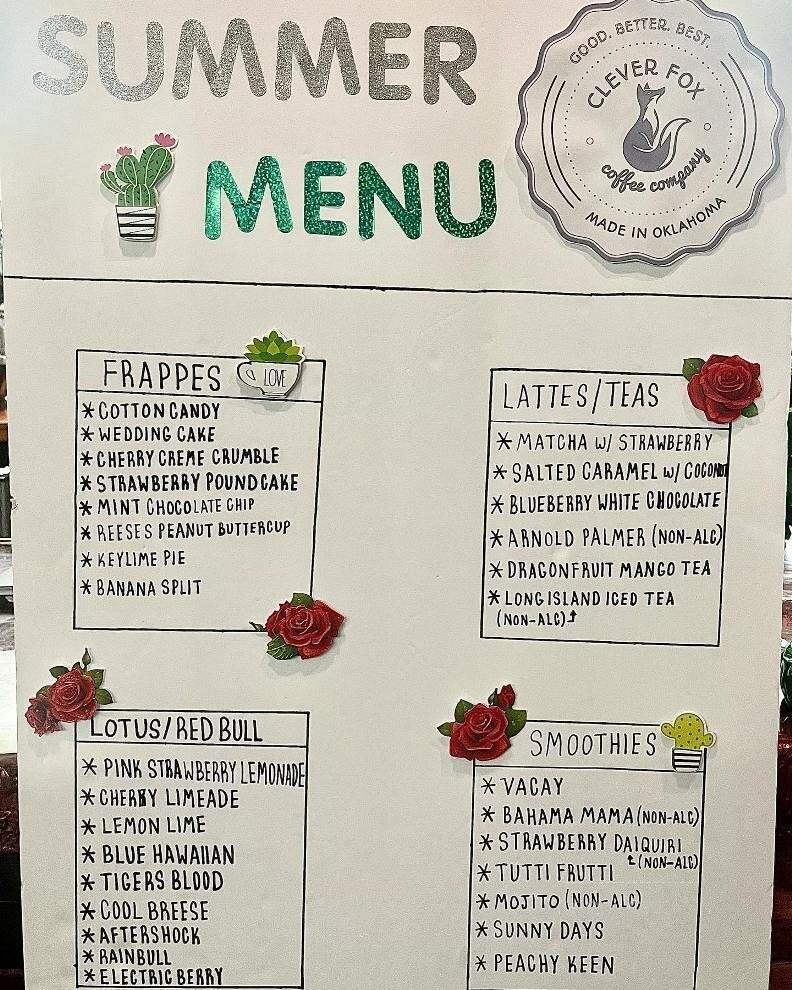 SUMMER
MENU
GOOD. BETTER. BEST.
CLEVER FOX
coffee company
MADE IN OKLAHOMA
FRAPPES
LOVE
* COTTON CANDY
* WEDDING CAKE
* CHERRY CREME CRUMBLE
* STRAWBERRY POUNDCAKE
* MINT CHOCOLATE CHIP
* REESES PEANUT BUTTERCUP
* KEYLIME PIE
* BANANA SPLIT
LATTES/TEAS
* MATCHA W/ STRAWBERRY
* SALTED CARAMEL W/ COCONUT
* BLUEBERRY WHITE CHOCOLATE
* ARNOLD PALMER (NON-ALC)
* DRAGONFRUIT MANGO TEA
* LONG ISLAND ICED TEA
(NON-ALC)
LOTUS/RED BULL
* PINK STRAWBERRY LEMONADE
* CHERRY LIMEADE
* LEMON LIME
* BLUE HAWAIIAN
* TIGERS BLOOD
* COOL BREESE
* AFTERSHOCK
* RAINBULL
* ELECTRIC BERRY
SMOOTHIES
* VACAY
* BAHAMA MAMA (NON-ALC)
* STRAWBERRY DAIQUIRI
(NON-ALC)
* TUTTI FRUTTI
* MOJITO (NON-ALC)
* SUNNY DAYS
* PEACHY KEEN